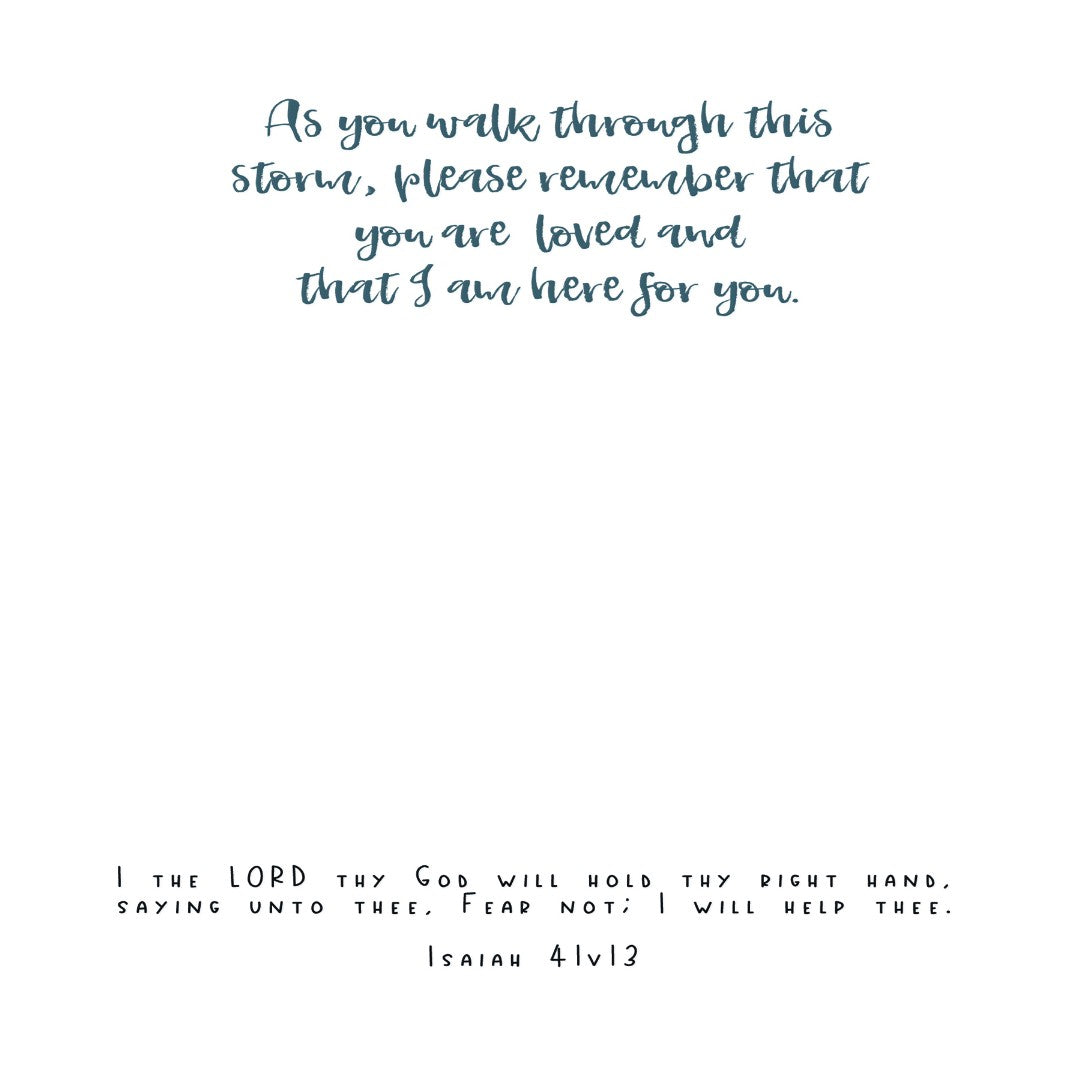 As you walk through this
storm, please remember that
you are loved and
that I am here for you.
I the LORD thy God will hold thy right hand,
saying unto thee, Fear not; I will help thee.
Isaiah 41v13